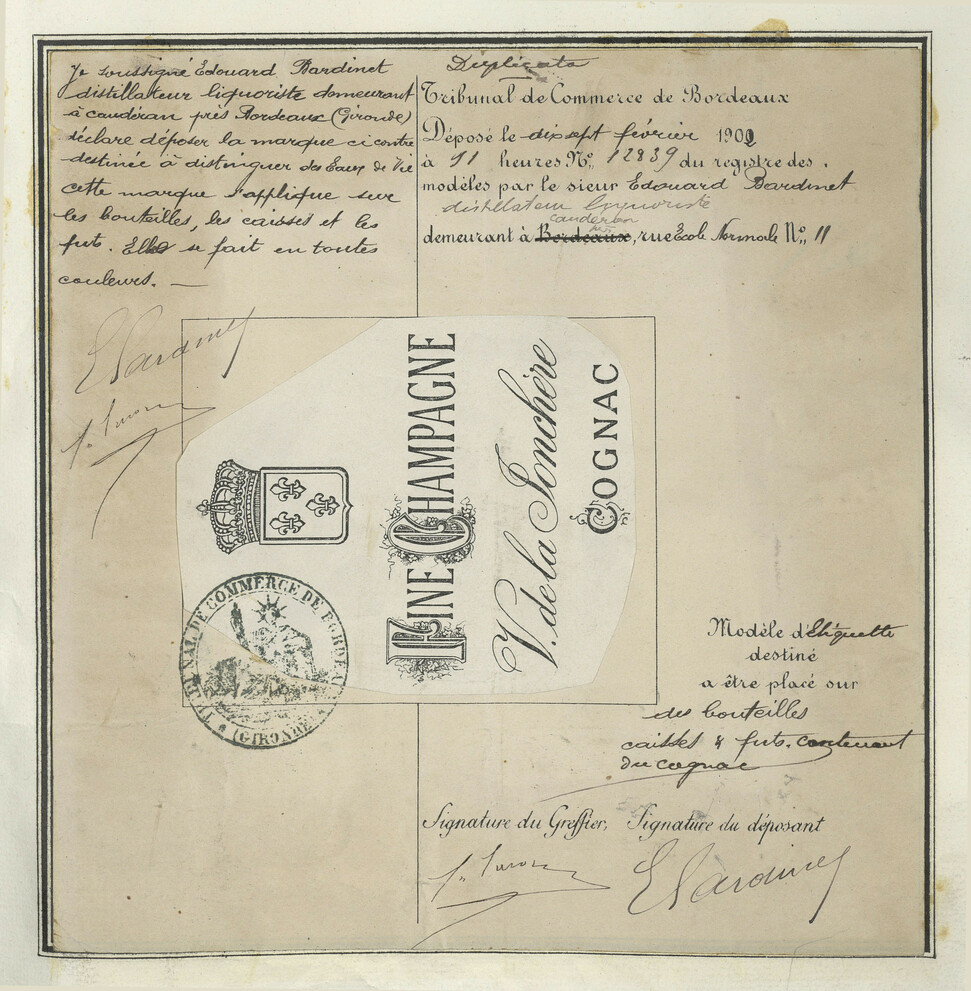 Je soussigné Edouard Bardinet
distillateur liquoriste demeurant
à caudéran près Bordeaux (Gironde)
déclare déposer la marque ci contre
destinée à distinguer des Eaux de Vie
cette marque s'applique sur
les bouteilles, les caisses et les
fut. Elle se fait en toutes
couleurs. —
EBardinet
Duplicata
Tribunal de Commerce de Bordeaux
Déposé le dix sept février 1902
à 11 heures N° 12839 du registre des
modèles par le sieur Edouard Bardinet
distillateur liquoriste
caudéran
demeurant à Bordeaux, rue Ecole Normale N° 11
FINE CHAMPAGNE
V. de la Jonchère
COGNAC
TRIBUNAL DE COMMERCE DE BORDEAUX
(GIRONDE)
Modèle d'Etiquette
destiné
a être placé sur
des bouteilles
caisses & futs. contenant
du cognac
Signature du Greffier, Signature du déposant
EBardinet